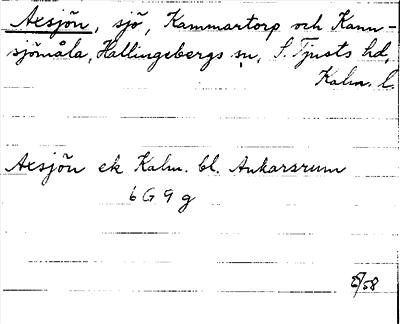 Axsjön, sjö, Kammartorp och Kann-
sjömåla, Hallingebergs sn, S. Tjusts hd,
Kalm. l.
Axsjön ek Kalm. bl. Ankarsrum
6 G 9 g